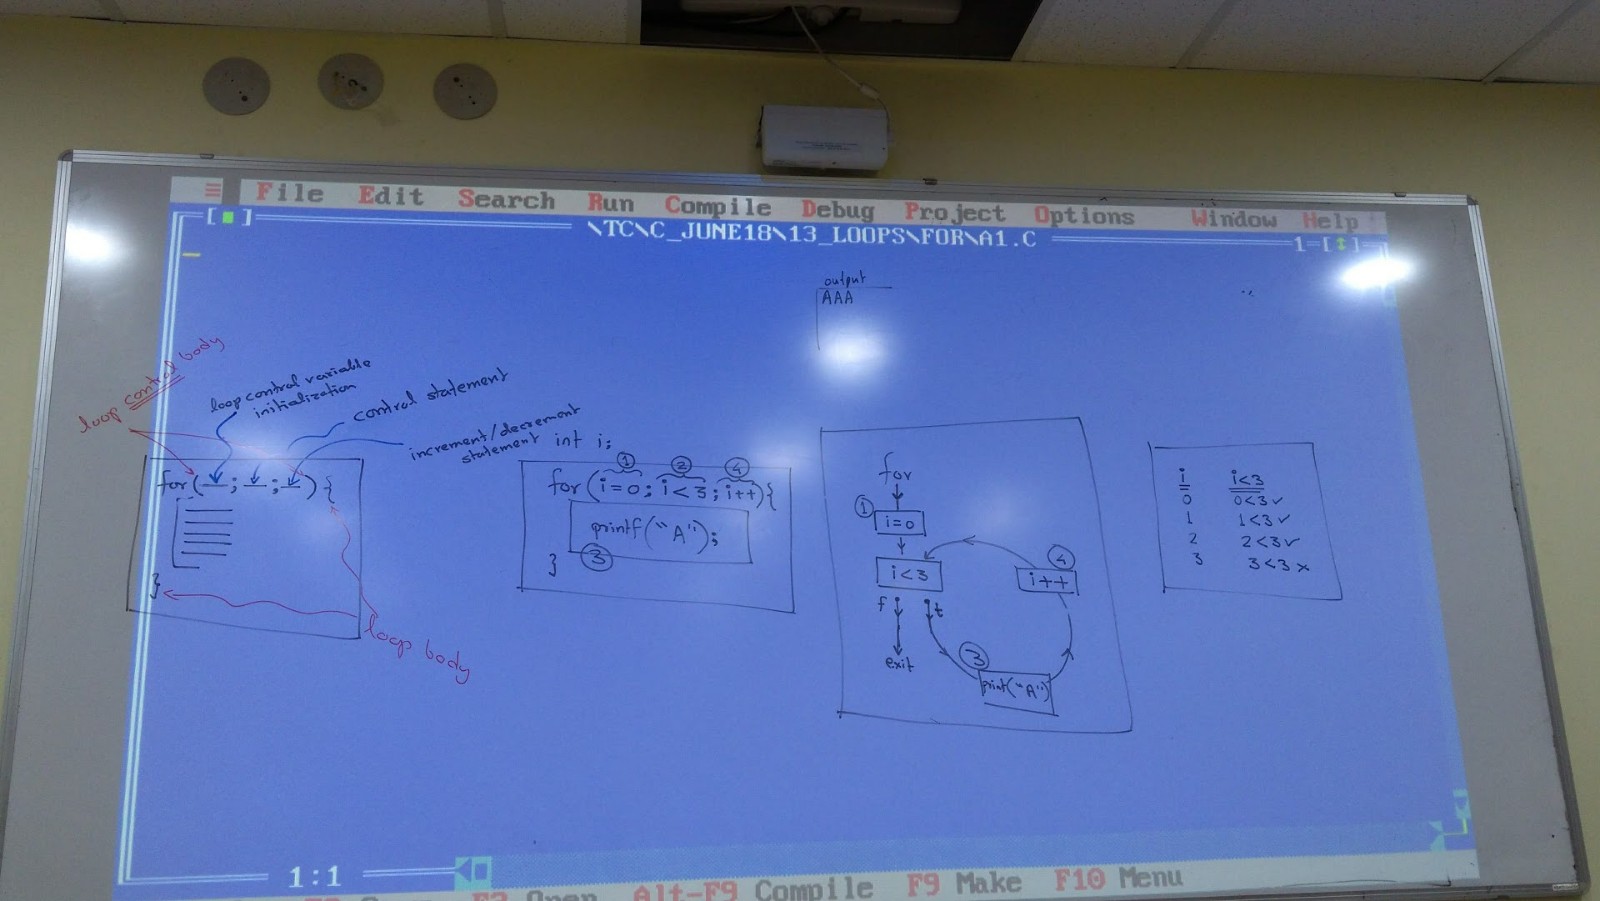 ≡ File Edit Search Run Compile Debug Project Options Window Help
[■] \TC\C_JUNE18\13_LOOPS\FOR\A1.C 1=[↕]
output
AAA
loop control body
loop control variable
initialization
control statement
increment/decrement
statement
for(__;__;__){
}
loop body
int i;
1 2 4
for(i=0; i<3; i++){
printf("A");
3
}
for
1
i=0
i<3
4
i++
f t
exit
3
print("A")
i i<3
0 0<3✓
1 1<3✓
2 2<3✓
3 3<3×
1:1
Open Alt-F9 Compile F9 Make F10 Menu